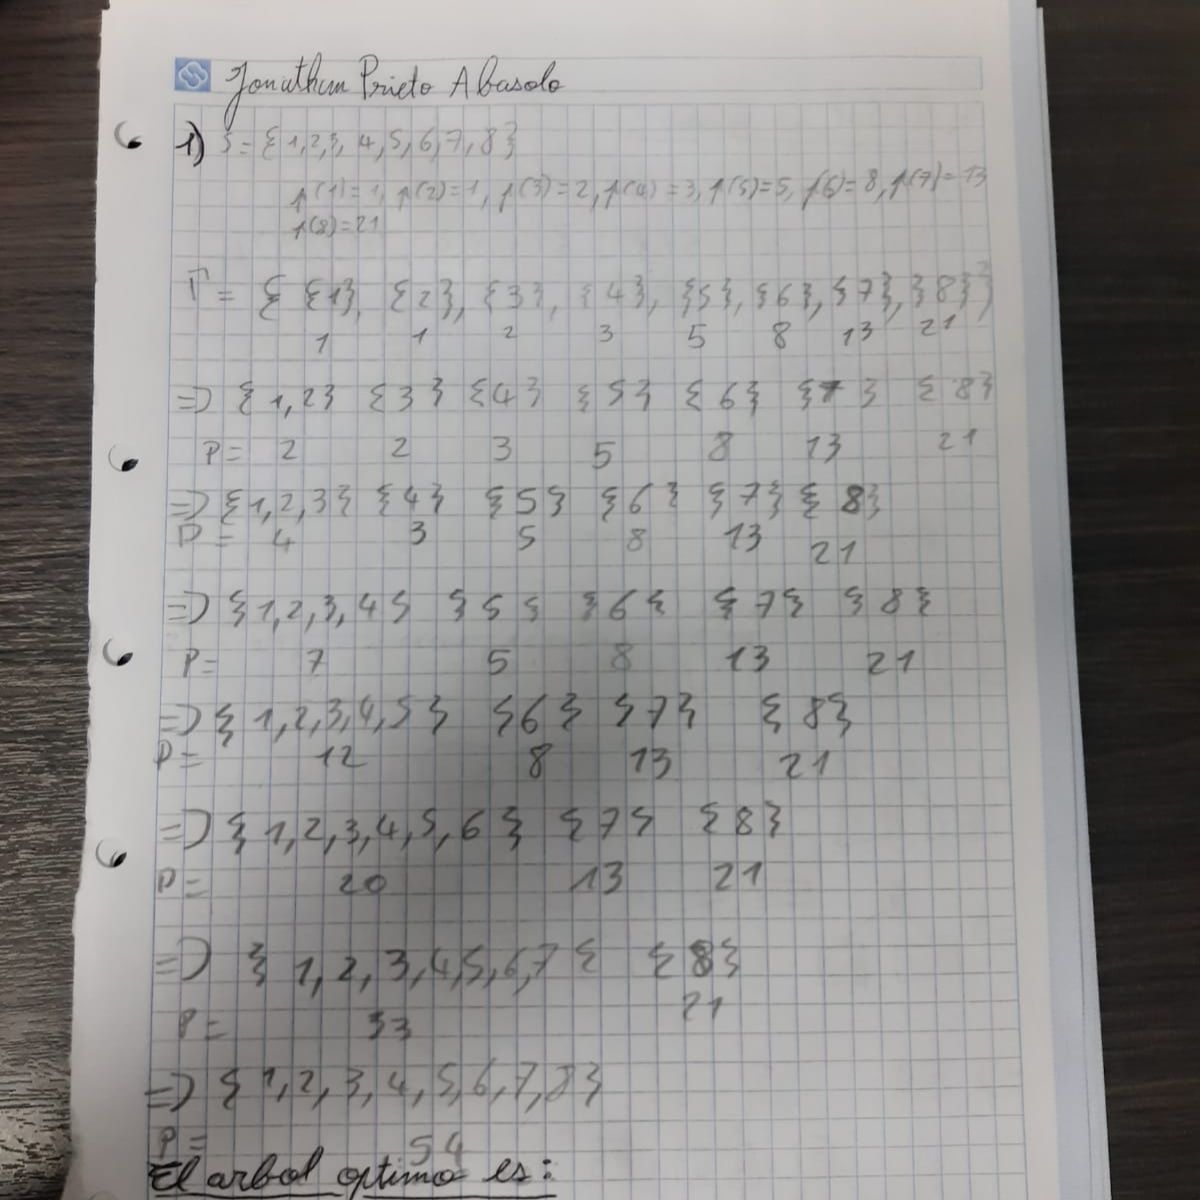 Jonathan Prieto Abasolo
1) S = {1,2,3, 4,5,6,7,8}
p(1)=1, p(2)=1, p(3)=2, p(4)=3, p(5)=5, p(6)=8, p(7)=13
p(8)=21
T = { {1}, {2}, {3}, {4}, {5}, {6}, {7}, {8} }
1 1 2 3 5 8 13 21
=> {1,2} {3} {4} {5} {6} {7} {8}
P= 2 2 3 5 8 13 21
=> {1,2,3} {4} {5} {6} {7} {8}
P= 4 3 5 8 13 21
=> {1,2,3,4} {5} {6} {7} {8}
P= 7 5 8 13 21
=> {1,2,3,4,5} {6} {7} {8}
P= 12 8 13 21
=> {1,2,3,4,5,6} {7} {8}
P= 20 13 21
=> {1,2,3,4,5,6,7} {8}
P= 33 21
=> {1,2,3,4,5,6,7,8}
P= 54
El arbol optimo es: